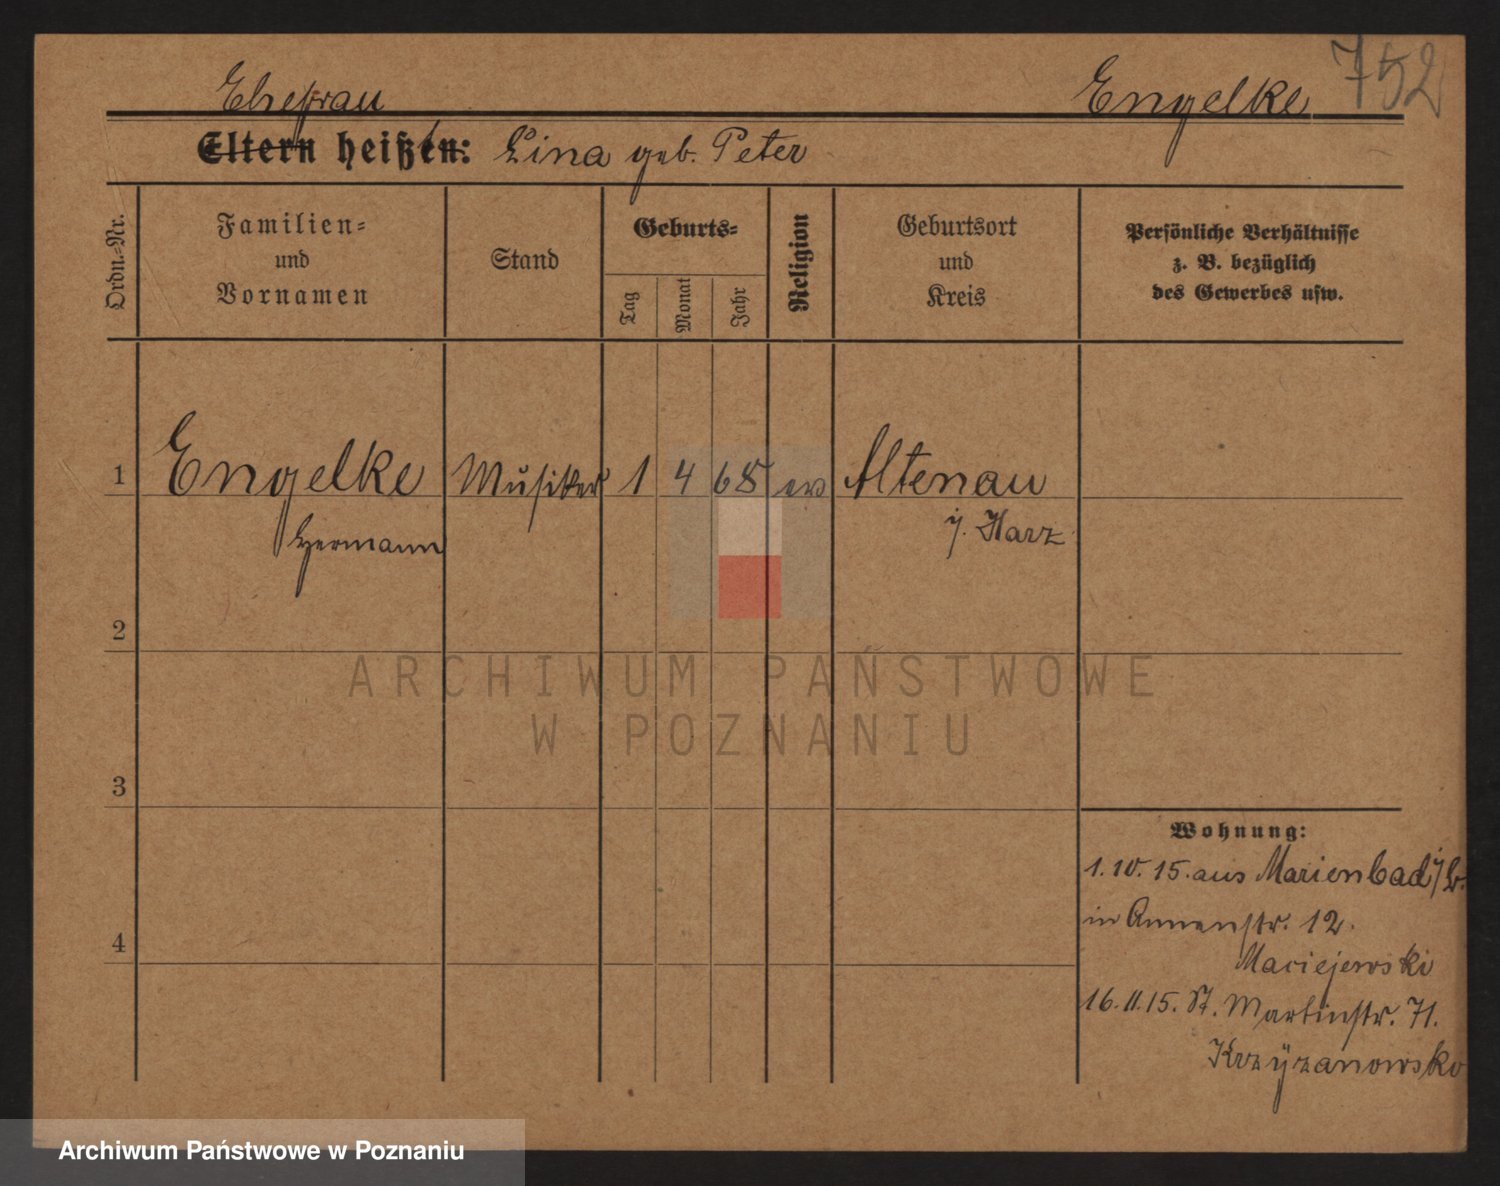 752
Ehefrau Engelke
Eltern heißen: Lina geb. Peter
Ordn.-Nr.
Familien-
und
Vornamen
Stand
Geburts-
Tag
Monat
Jahr
Religion
Geburtsort
und
Kreis
Persönliche Verhältnisse
z. B. bezüglich
des Gewerbes usw.
1 Engelke Musiker 1 4 68 ev Altenau
Hermann i/. Harz
2
3
4
Wohnung:
1. 10. 15. aus Marienbad i/B.
in Annenstr. 12.
Maciejewski
16. 11. 15. St. Martinstr. 71.
Krzyzanowsko
ARCHIWUM PAŃSTWOWE
W POZNANIU
Archiwum Państwowe w Poznaniu